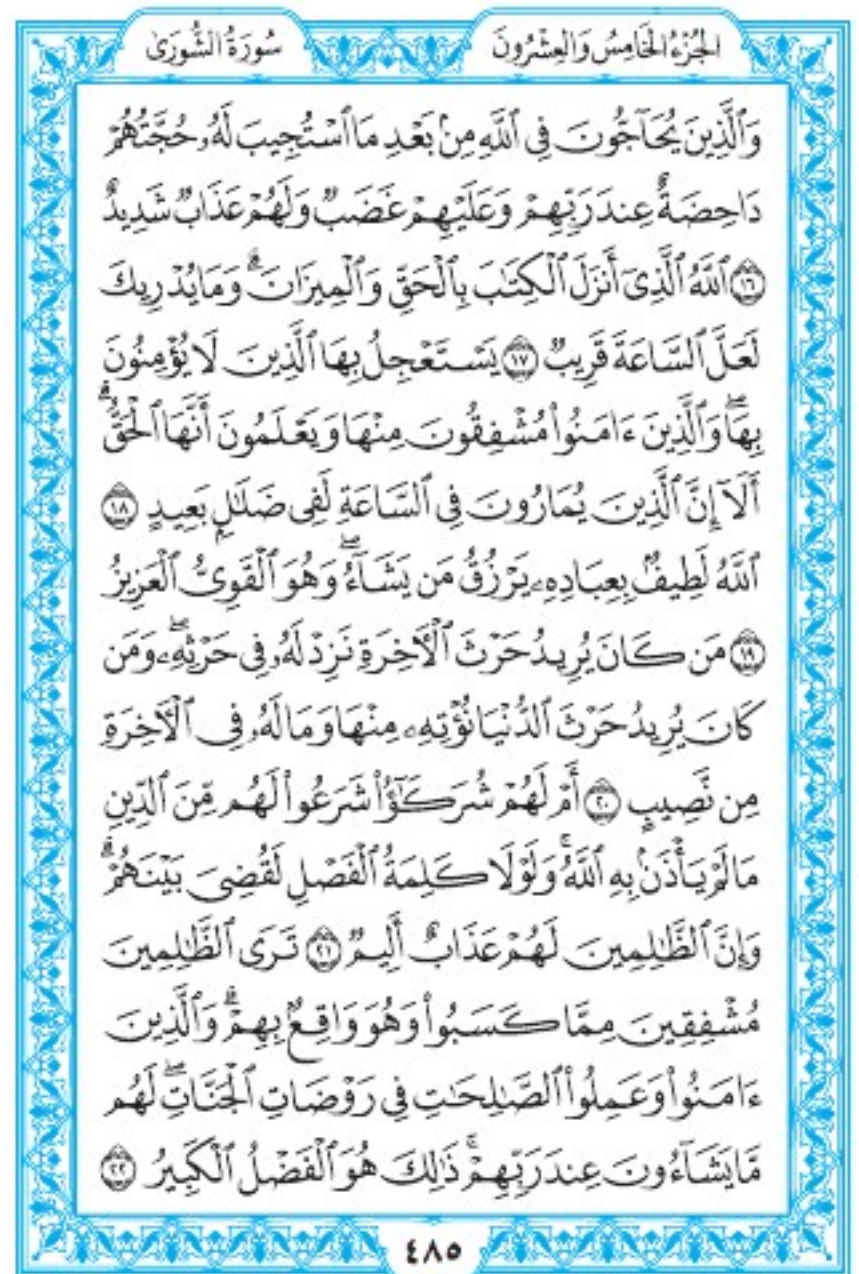 الجُزْءُ الخَامِسُ وَالعِشْرُونَ
سُورَةُ الشُّورَىٰ
وَٱلَّذِينَ يُحَآجُّونَ فِى ٱللَّهِ مِنۢ بَعْدِ مَا ٱسْتُجِيبَ لَهُۥ حُجَّتُهُمْ
دَاحِضَةٌ عِندَ رَبِّهِمْ وَعَلَيْهِمْ غَضَبٌ وَلَهُمْ عَذَابٌ شَدِيدٌ
۝١٦ ٱللَّهُ ٱلَّذِىٓ أَنزَلَ ٱلْكِتَٰبَ بِٱلْحَقِّ وَٱلْمِيزَانَ ۗ وَمَا يُدْرِيكَ
لَعَلَّ ٱلسَّاعَةَ قَرِيبٌ ۝١٧ يَسْتَعْجِلُ بِهَا ٱلَّذِينَ لَا يُؤْمِنُونَ
بِهَا ۖ وَٱلَّذِينَ ءَامَنُوا۟ مُشْفِقُونَ مِنْهَا وَيَعْلَمُونَ أَنَّهَا ٱلْحَقُّ ۗ
أَلَآ إِنَّ ٱلَّذِينَ يُمَارُونَ فِى ٱلسَّاعَةِ لَفِى ضَلَٰلٍۭ بَعِيدٍ ۝١٨
ٱللَّهُ لَطِيفٌۢ بِعِبَادِهِۦ يَرْزُقُ مَن يَشَآءُ ۖ وَهُوَ ٱلْقَوِىُّ ٱلْعَزِيزُ
۝١٩ مَن كَانَ يُرِيدُ حَرْثَ ٱلْـَٔاخِرَةِ نَزِدْ لَهُۥ فِى حَرْثِهِۦ ۖ وَمَن
كَانَ يُرِيدُ حَرْثَ ٱلدُّنْيَا نُؤْتِهِۦ مِنْهَا وَمَا لَهُۥ فِى ٱلْـَٔاخِرَةِ
مِن نَّصِيبٍ ۝٢٠ أَمْ لَهُمْ شُرَكَٰٓؤُا۟ شَرَعُوا۟ لَهُم مِّنَ ٱلدِّينِ
مَا لَمْ يَأْذَنۢ بِهِ ٱللَّهُ ۚ وَلَوْلَا كَلِمَةُ ٱلْفَصْلِ لَقُضِىَ بَيْنَهُمْ ۗ
وَإِنَّ ٱلظَّٰلِمِينَ لَهُمْ عَذَابٌ أَلِيمٌ ۝٢١ تَرَى ٱلظَّٰلِمِينَ
مُشْفِقِينَ مِمَّا كَسَبُوا۟ وَهُوَ وَاقِعٌۢ بِهِمْ ۗ وَٱلَّذِينَ
ءَامَنُوا۟ وَعَمِلُوا۟ ٱلصَّٰلِحَٰتِ فِى رَوْضَاتِ ٱلْجَنَّاتِ ۖ لَهُم
مَّا يَشَآءُونَ عِندَ رَبِّهِمْ ۚ ذَٰلِكَ هُوَ ٱلْفَضْلُ ٱلْكَبِيرُ ۝٢٢
٤٨٥